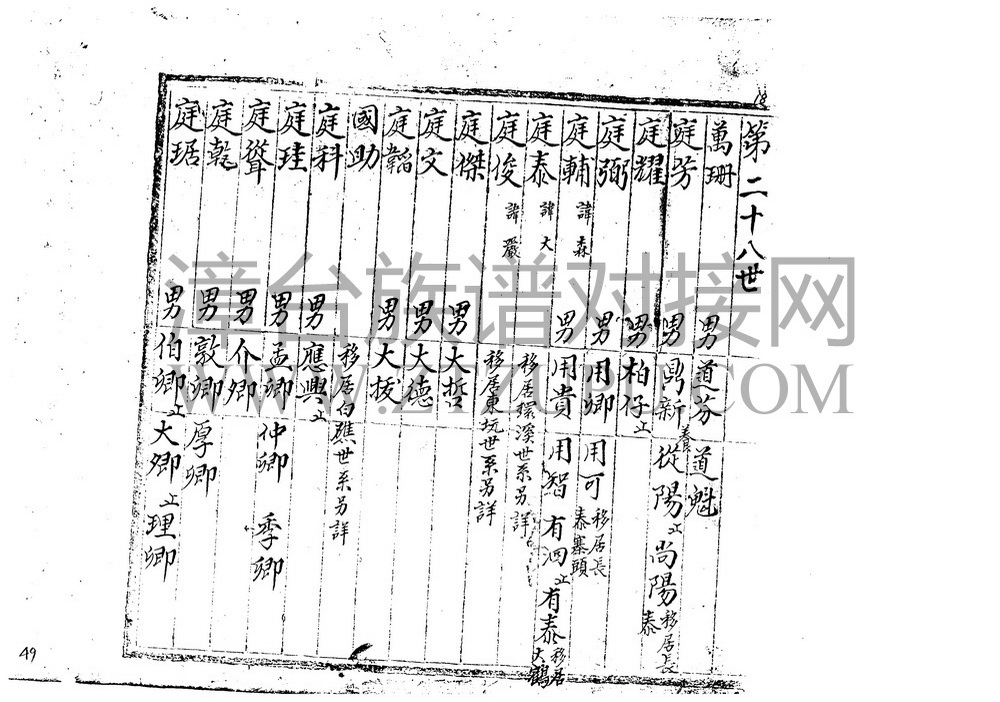 第二十八世
萬珊 男 道芬 道魁
庭芳 男 鼎新 養 從陽 ㆖ 尚陽 移居長泰
庭耀 男 柏仔 ㆖
庭弼 男 用卿 用可 移居長泰寨頭
庭輔 諱森 男 用貴 用智 有泗 ㆖ 有泰 移居大鶴
庭泰 諱大 移居環溪世系另詳
庭俊 諱嚴 移居東坑世系另詳
庭傑 男 大哲
庭文 男 大德
庭韜 男 大拔
國助 移居白礁世系另詳
庭科 男 應興 ㆖
庭珪 男 孟卿 仲卿 季卿
庭聳 男 介卿
庭乾 男 敦卿 厚卿
庭琚 男 伯卿 ㆖ 大卿 ㆖ 理卿
49
漳台族谱对接网